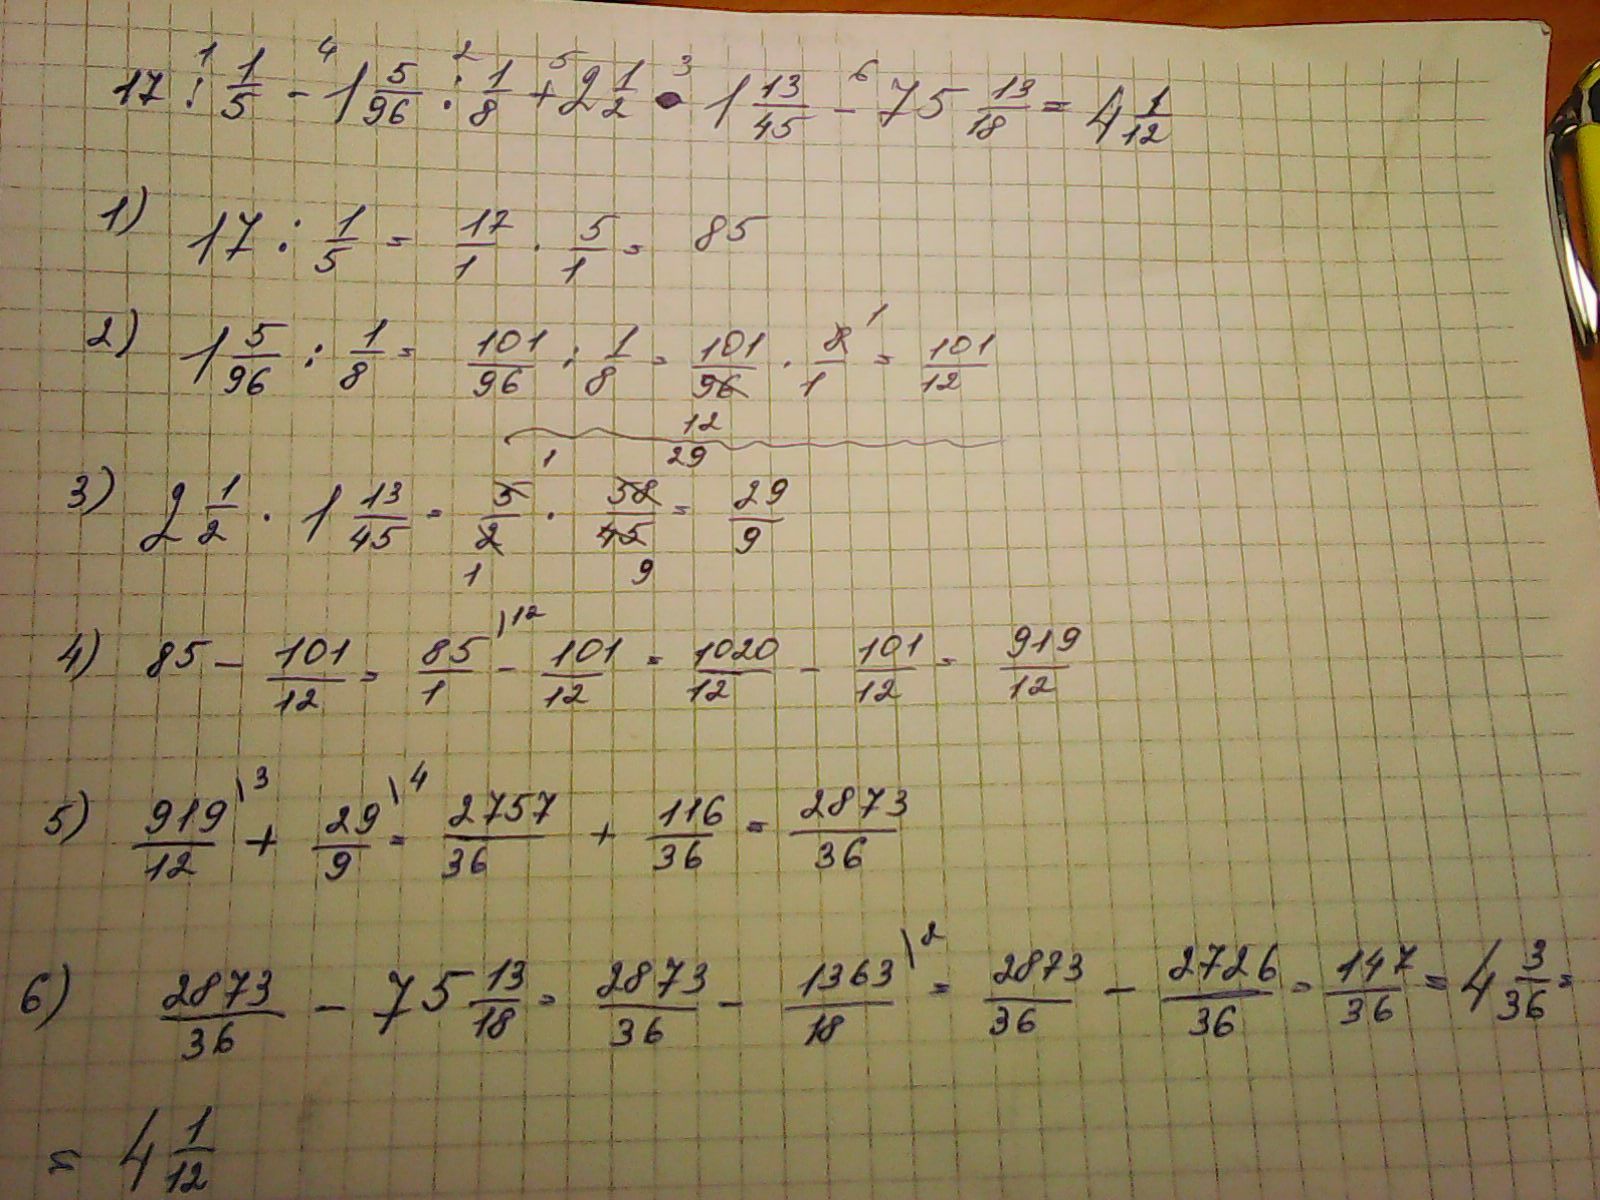 17 : 1/5 - 1 5/96 : 1/8 + 2 1/2 · 1 13/45 - 75 13/18 = 4 1/12
1) 17 : 1/5 = 17/1 · 5/1 = 85
2) 1 5/96 : 1/8 = 101/96 : 1/8 = 101/96 · 8/1 = 101/12
3) 2 1/2 · 1 13/45 = 5/2 · 58/45 = 29/9
4) 85 - 101/12 = 85/1 \12 - 101/12 = 1020/12 - 101/12 = 919/12
5) 919/12 \3 + 29/9 \4 = 2757/36 + 116/36 = 2873/36
6) 2873/36 - 75 13/18 = 2873/36 - 1363/18 \2 = 2873/36 - 2726/36 = 147/36 = 4 3/36 =
= 4 1/12